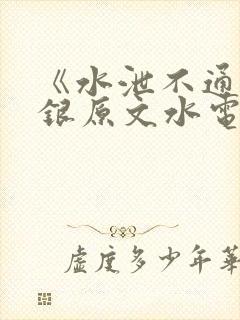 《水泄不通
銀原文水電
虛度多少年華